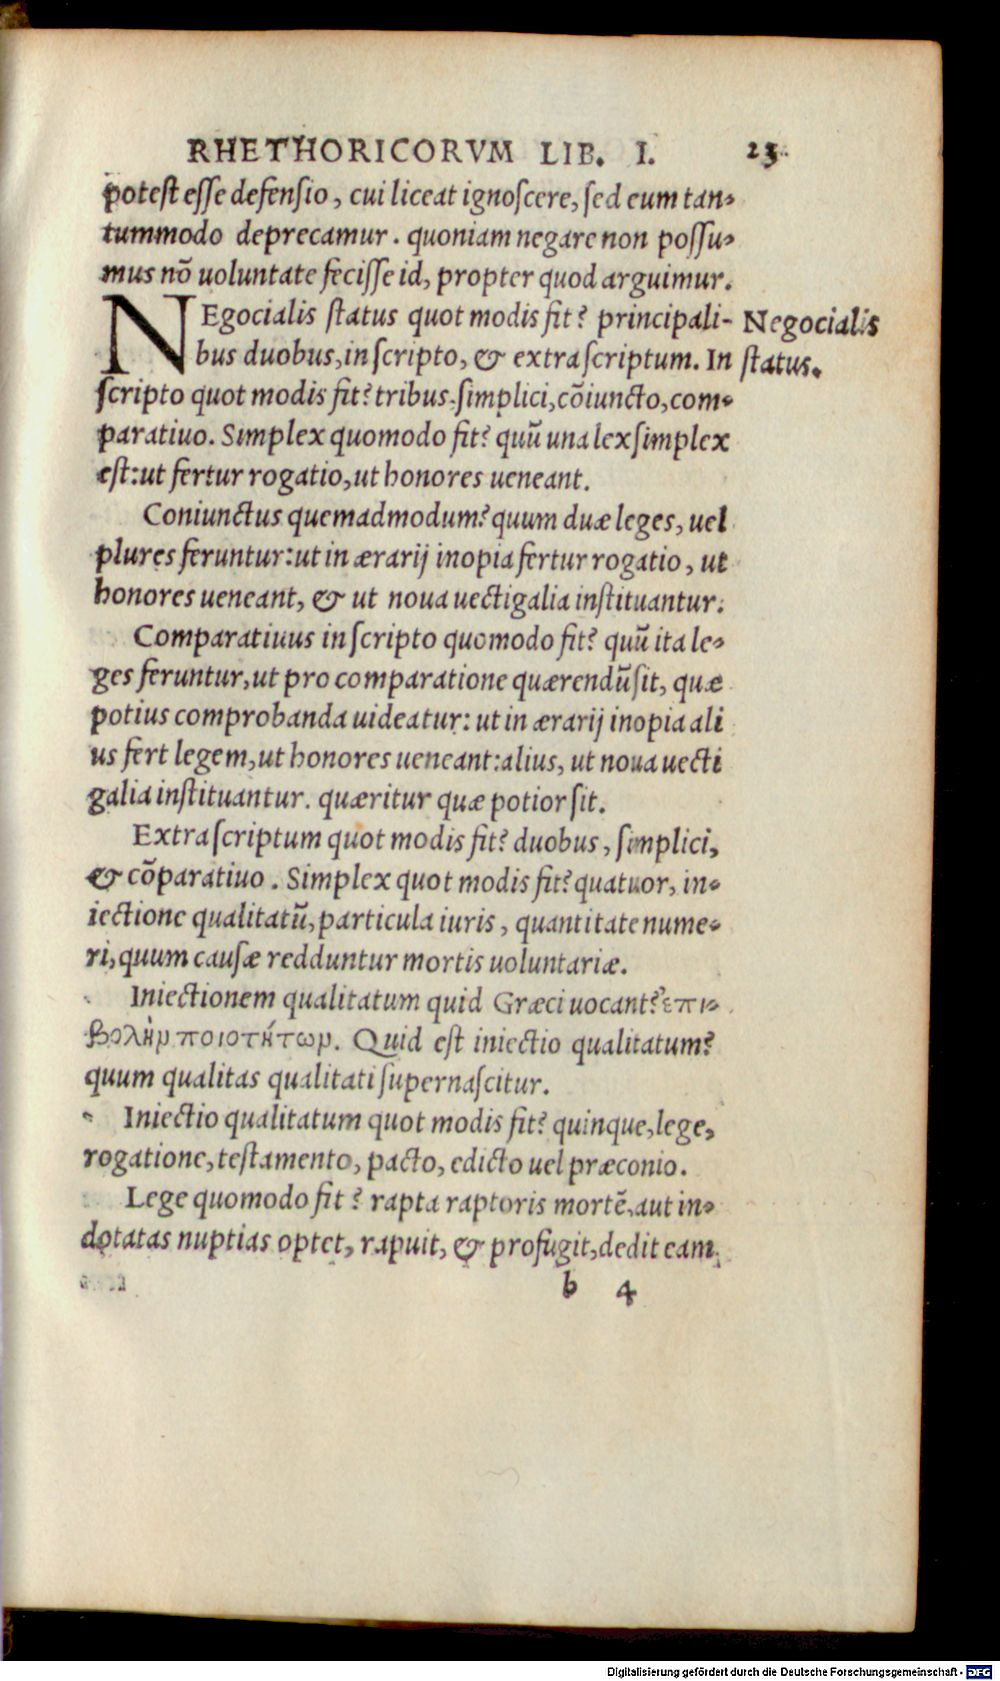 RHETHORICORVM LIB. I. 23
potest esse defensio, cui liceat ignoscere, sed eum tan-
tummodo deprecamur. quoniam negare non possu-
mus nõ uoluntate fecisse id, propter quod arguimur.
NEgocialis status quot modis fit? principali-
bus duobus, in scripto, & extra scriptum. In
Negocialis
status.
scripto quot modis fit? tribus. simplici, cõiuncto, com-
paratiuo. Simplex quomodo fit? quũ una lex simplex
est: ut fertur rogatio, ut honores ueneant.
Coniunctus quemadmodum? quum duæ leges, uel
plures feruntur: ut in ærarij inopia fertur rogatio, ut
honores ueneant, & ut noua uectigalia instituantur.
Comparatiuus in scripto quomodo fit? quũ ita le-
ges feruntur, ut pro comparatione quærendũ sit, quæ
potius comprobanda uideatur: ut in ærarij inopia ali
us fert legem, ut honores ueneant: alius, ut noua uecti
galia instituantur. quæritur quæ potior sit.
Extra scriptum quot modis fit? duobus, simplici,
& cõparatiuo. Simplex quot modis fit? quatuor, in-
iectione qualitatũ, particula iuris, quantitate nume-
ri, quum causæ redduntur mortis uoluntariæ.
Iniectionem qualitatum quid Græci uocant? ἐπι-
βολὴν ποιοτήτων. Quid est iniectio qualitatum?
quum qualitas qualitati supernascitur.
Iniectio qualitatum quot modis fit? quinque, lege,
rogatione, testamento, pacto, edicto uel præconio.
Lege quomodo fit? rapta raptoris mortẽ, aut in-
dotatas nuptias optet, rapuit, & profugit, dedit eam
b 4
Digitalisierung gefördert durch die Deutsche Forschungsgemeinschaft - DFG